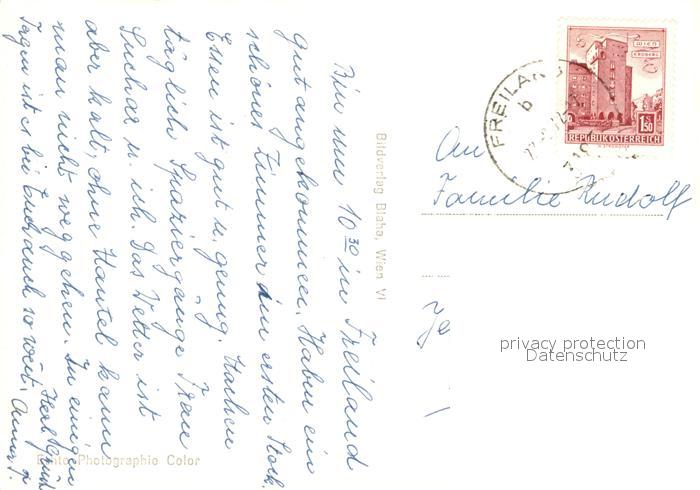 Bin um 10 30 in Freiland
gut angekommen. Haben ein
schönes Zimmer im ersten Stock.
Essen ist gut u. genug. Machen
täglich Spaziergänge Frau
Suchar u. ich. Das Wetter ist
aber kalt, ohne Mantel kann
man nicht weggehen. In einigen
Tagen ist es bei Euch auch so weit.
Herzl. Grüße
Anna
Bildverlag Blaha, Wien VI
Echte Photographie Color
WIEN
ERDBERG
1 S 50
REPUBLIK ÖSTERREICH
FREILAND
b
An
Familie Rudolf
Je
privacy protection
Datenschutz